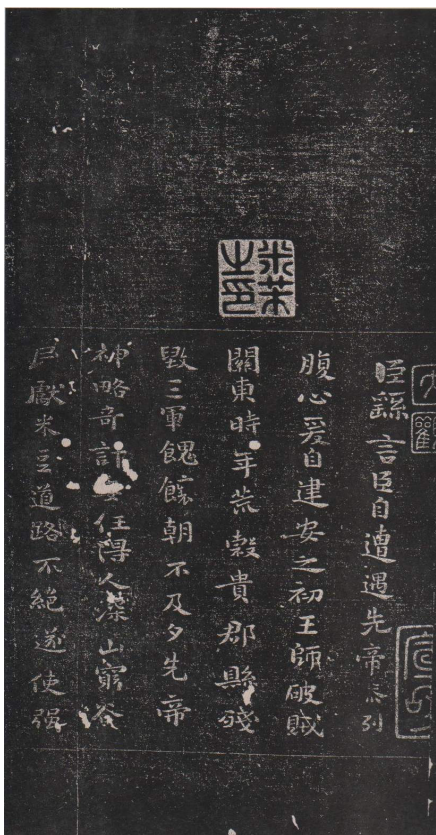 大觀
宣和
臣繇言臣自遭遇先帝忝列
腹心爰自建安之初王師破賊
關東時年荒穀貴郡縣殘
毀三軍餽饟朝不及夕先帝
神略奇計委任得人深山窮谷
民獻米豆道路不絕遂使強
米芾之印